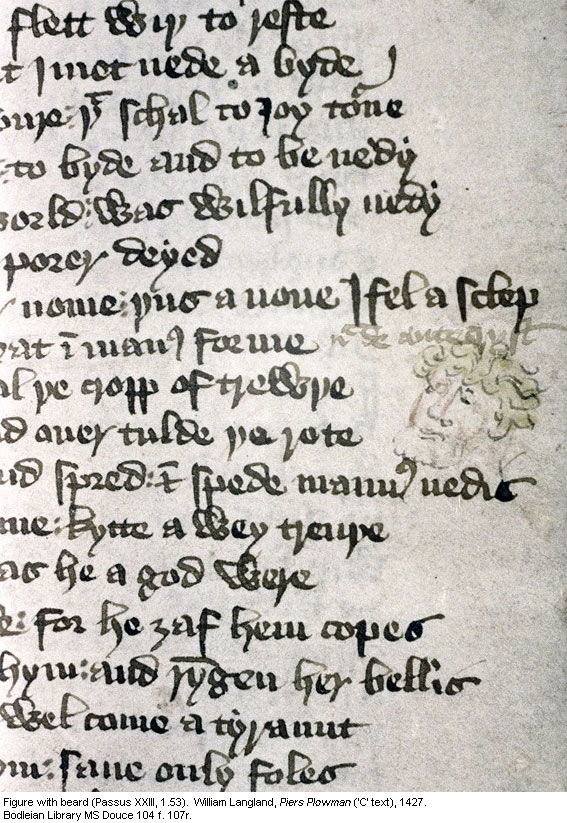 flett wiþ to reste
I mot nede a byde
þt schal to Joy torne
to byde and to be nedy
world: was wilfully nedy
porer deyed
nome: þus a none I fel a sclep
þat ī manꝰ forme
de antecryst
þe cropp of trewþe
ouer tulde þe rote
spred: & spede mannꝰ nedis
kytte a wey treuþe
as he a god were
for he ȝaf hem copes
hym: and ryngen her bellis
wel come a tyraunt
saue only foles
Figure with beard (Passus XXIII, 1.53). William Langland, Piers Plowman ('C' text), 1427.
Bodleian Library MS Douce 104 f. 107r.